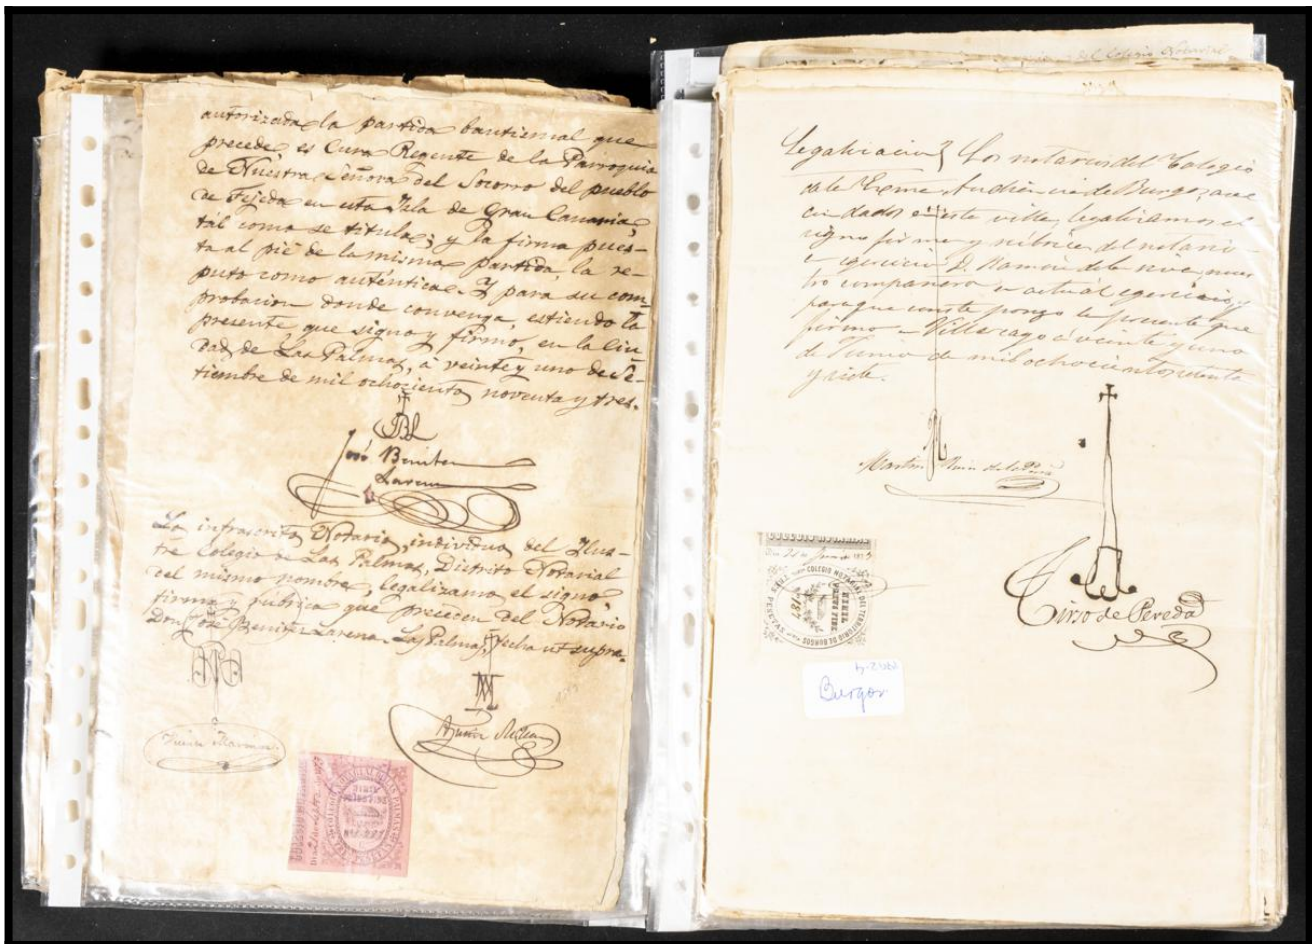 autorizada la partida bautismal que
precede es Cura Regente de la Parroquia
de Nuestra Señora del Socorro del pueblo
de Tejeda en esta Isla de Gran Canaria,
tál como se titula; y la firma pues-
ta al pié de la misma partida, la re-
puto como auténtica. Y para su com
probacion donde convenga, estiendo la
presente, que signo y firmo, en la Ciu
dad de Las Palmas, á veinte y uno de Se-
tiembre de mil ochocientos noventa y tres.
José Benitez
Larena
Los infrascritos Notarios, individuos del Ilus-
tre Colegio de Las Palmas, Distrito Notarial
del mismo nombre, legalizamos el signo
firma y rúbrica que preceden del Notario
Don José Benitez Larena. Las Palmas, fecha ut supra.
Vicente Martinez
Agustin Millares
del Colegio Notarial
Legalizacion} Los notarios del Colegio
de la Exma Audiencia de Burgos, ave
cindados en esta villa, legalizamos el
signo firma y rúbrica del notario
D. Ramon de la
tro compañero en actual egercicio, y
para que conste pongo la presente que
firmo en Villarcayo á veinte y uno
de Junio de mil ochocientos setenta
y siete.
Martin Ruiz de la Peña
Tirso de Pereda
COLEGIO NOTARIAL DEL TERRITORIO DE BURGOS
TRES PESETAS
Burgos